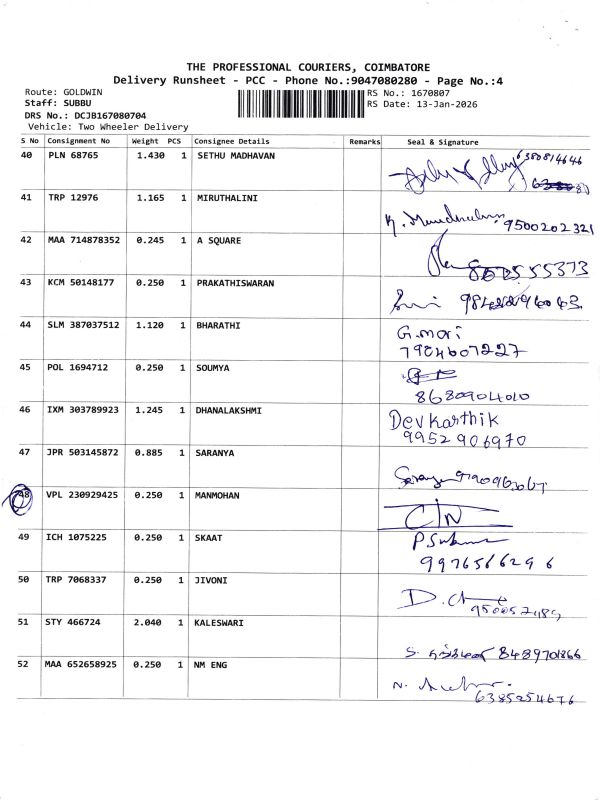 THE PROFESSIONAL COURIERS, COIMBATORE
Delivery Runsheet - PCC - Phone No.:9047080280 - Page No.:4
Route: GOLDWIN
RS No.: 1670807
Staff: SUBBU
RS Date: 13-Jan-2026
DRS No.: DCJB167080704
Vehicle: Two Wheeler Delivery
S No Consignment No Weight PCS Consignee Details Remarks Seal & Signature
40 PLN 68765 1.430 1 SETHU MADHAVAN 6380814646
41 TRP 12976 1.165 1 MIRUTHALINI 9500202321
42 MAA 714878352 0.245 1 A SQUARE
43 KCM 50148177 0.250 1 PRAKATHISWARAN
44 SLM 387037512 1.120 1 BHARATHI G.mari
7984607227
45 POL 1694712 0.250 1 SOUMYA
8680904010
46 IXM 303789923 1.245 1 DHANALAKSHMI Devkarthik
9952906970
47 JPR 503145872 0.885 1 SARANYA
48 VPL 230929425 0.250 1 MANMOHAN
49 ICH 1075225 0.250 1 SKAAT
9976566296
50 TRP 7068337 0.250 1 JIVONI
51 STY 466724 2.040 1 KALESWARI 8489701866
52 MAA 652658925 0.250 1 NM ENG
6385254676